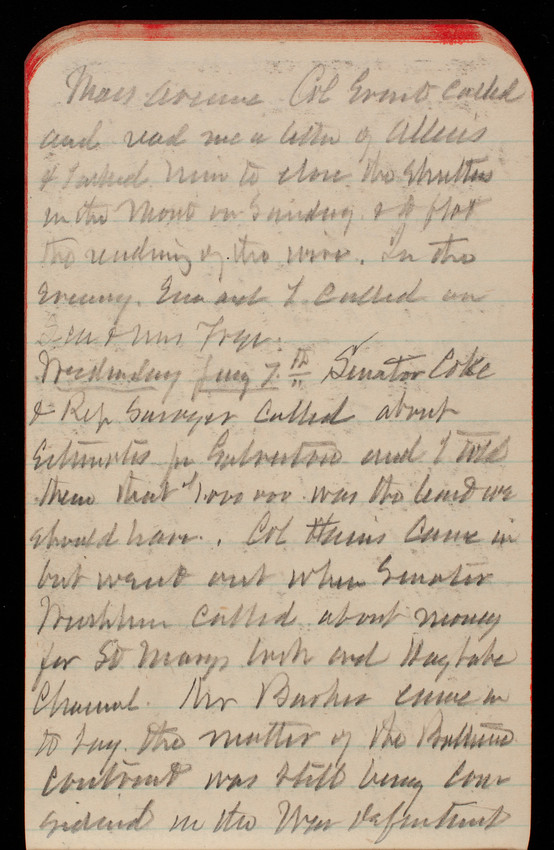 Mass avenue Col Ernst called
and read me a letter of Allen's
& I asked him to close the shutters
in the Mont on Sunday. & to
the of the wire. In the
Evening. Eva and I called on
Sen & Mrs Frye.
Wednesday Jany 7th Senator Coke
& Rep Sawyer called about
Estimates for Galveston and I told
them that $1,000,000 was the least we
should have. Col Hains came in
but went out when Senator
Washburn called about money
for St Marys lock and Haylake
Channel. Mr Barker came in
to say the matter of the Baltimore
Contract was still being Con
sidered in the War Department